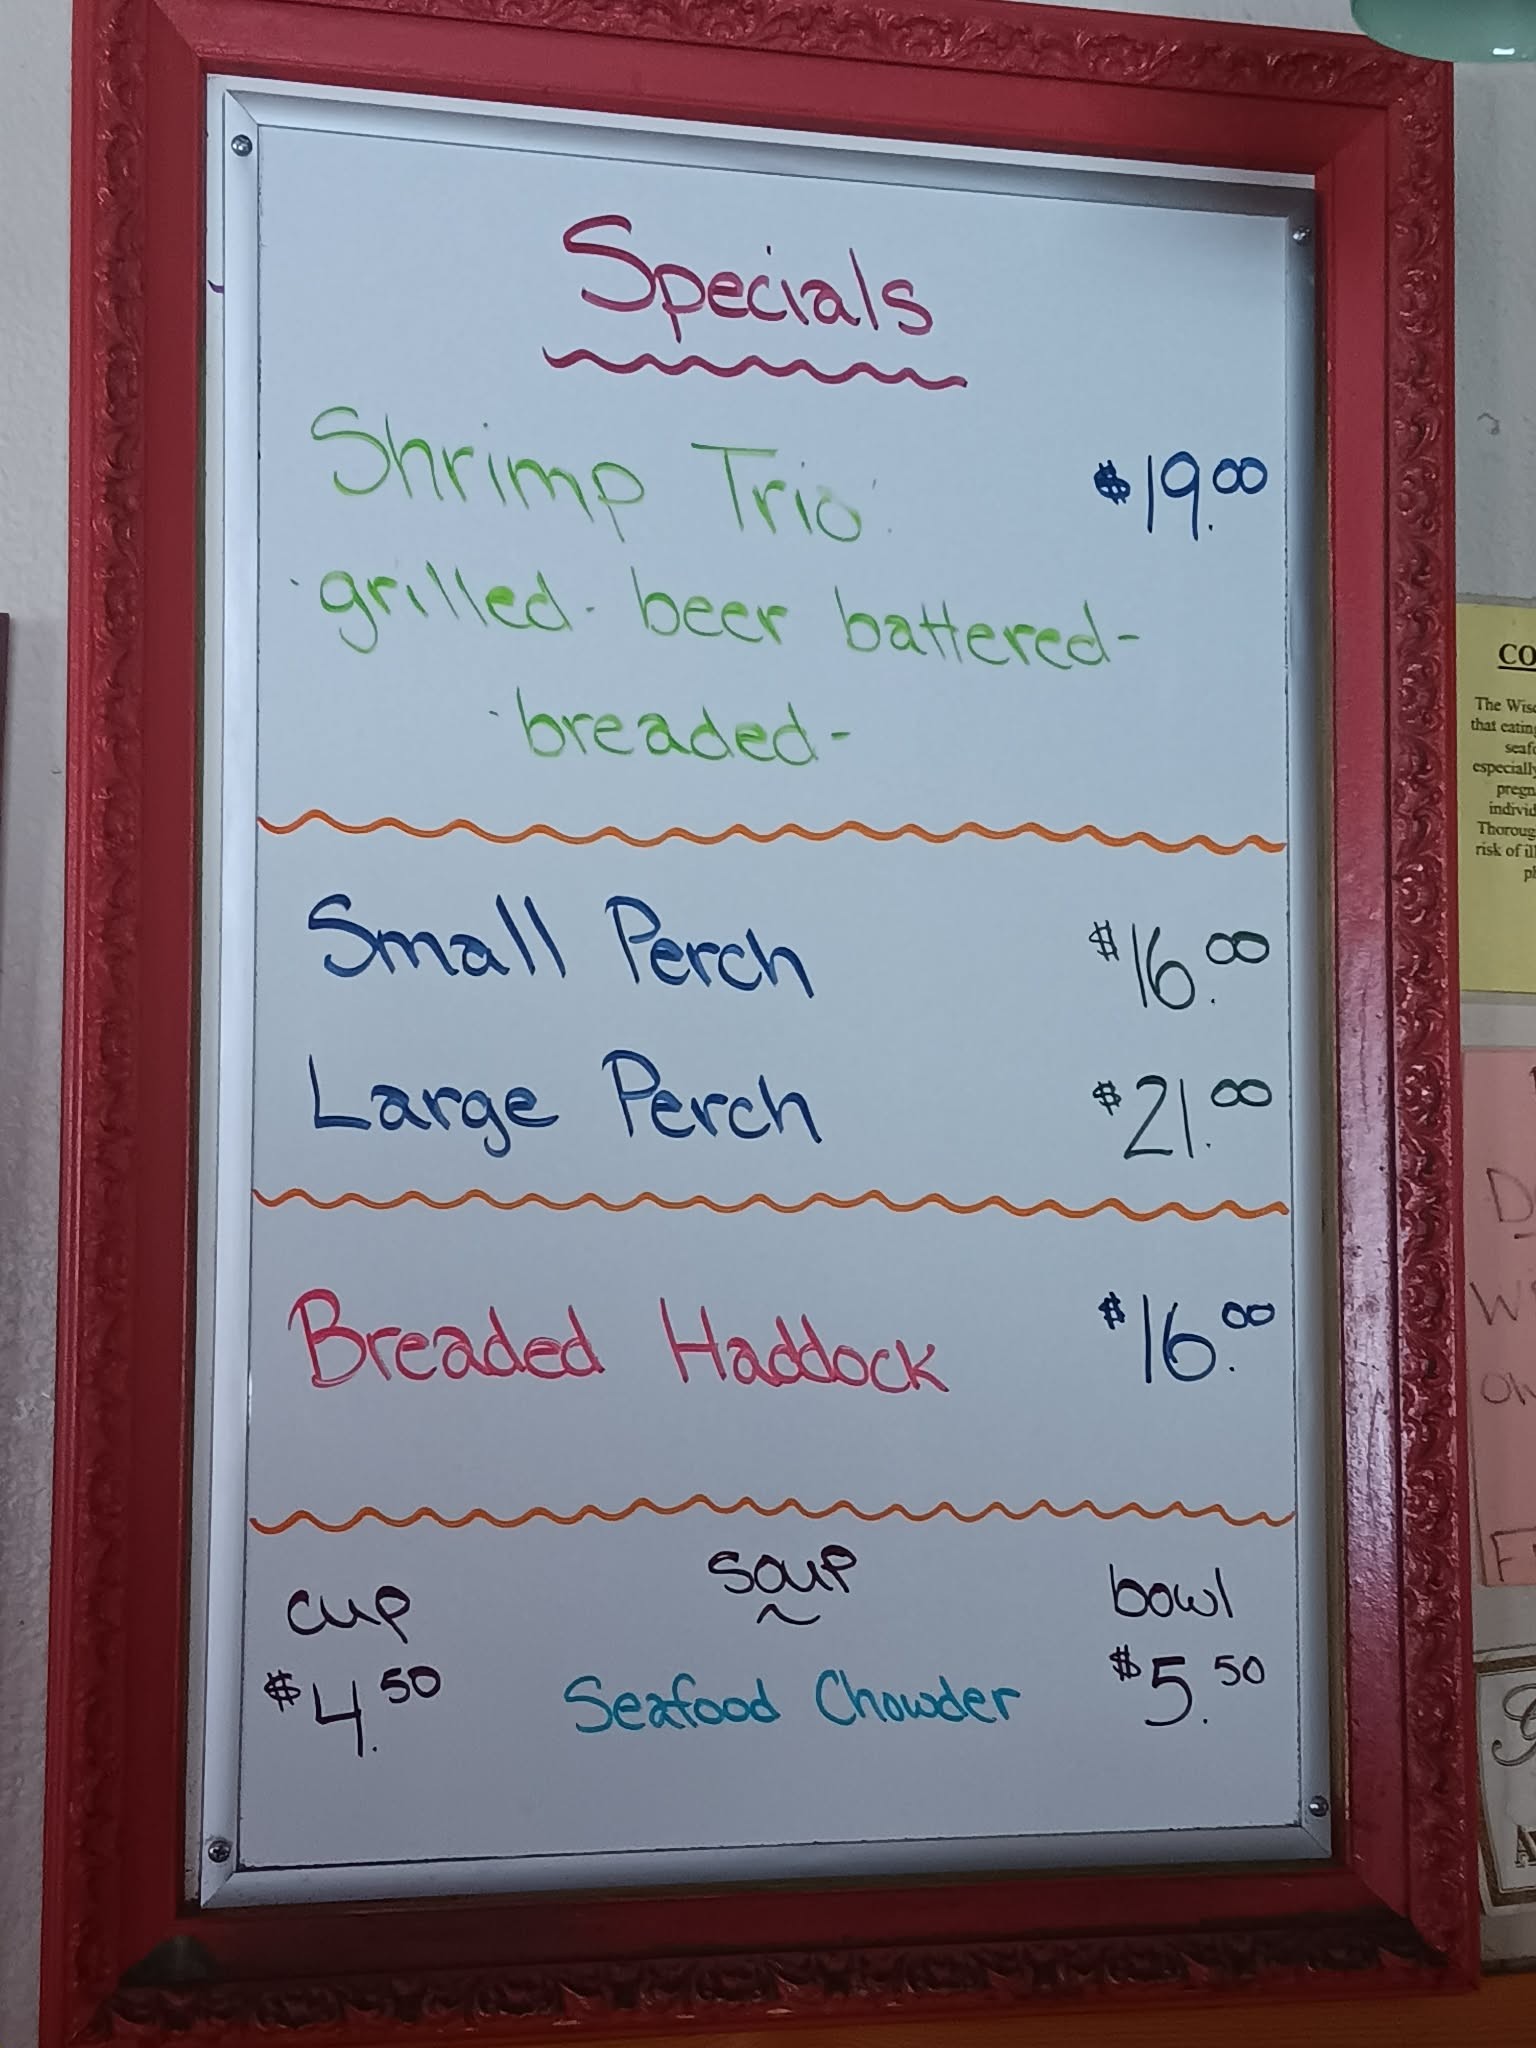 Specials
Shrimp Trio $19.00
·grilled- beer battered-
·breaded-
Small Perch $16.00
Large Perch $21.00
Breaded Haddock $16.00
soup
cup bowl
$4.50 Seafood Chowder $5.50
CO
The Wisc
that eating
seafo
especially
pregn
individ
Thoroug
risk of ill
ph
D
W